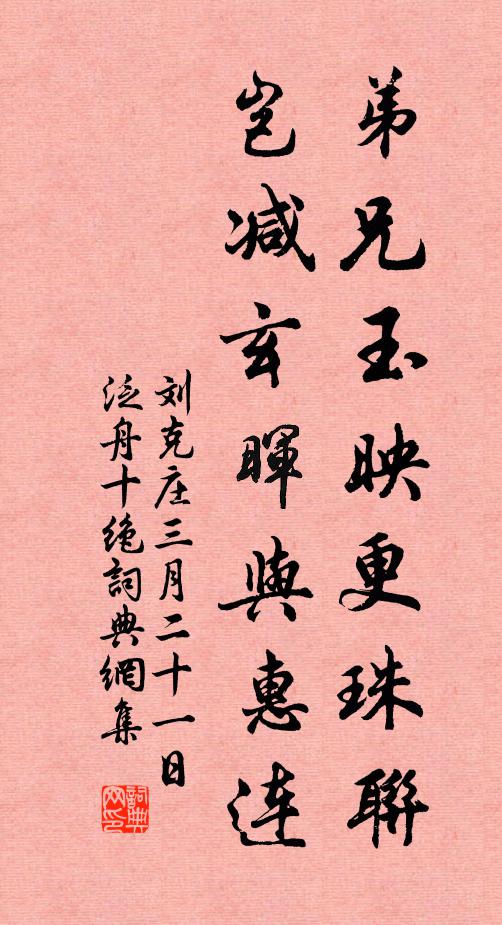 弟兄玉映更珠聯
岂减玄暉與惠连
刘克庄三月二十一日
泛舟十绝詞典網集
詞典网印